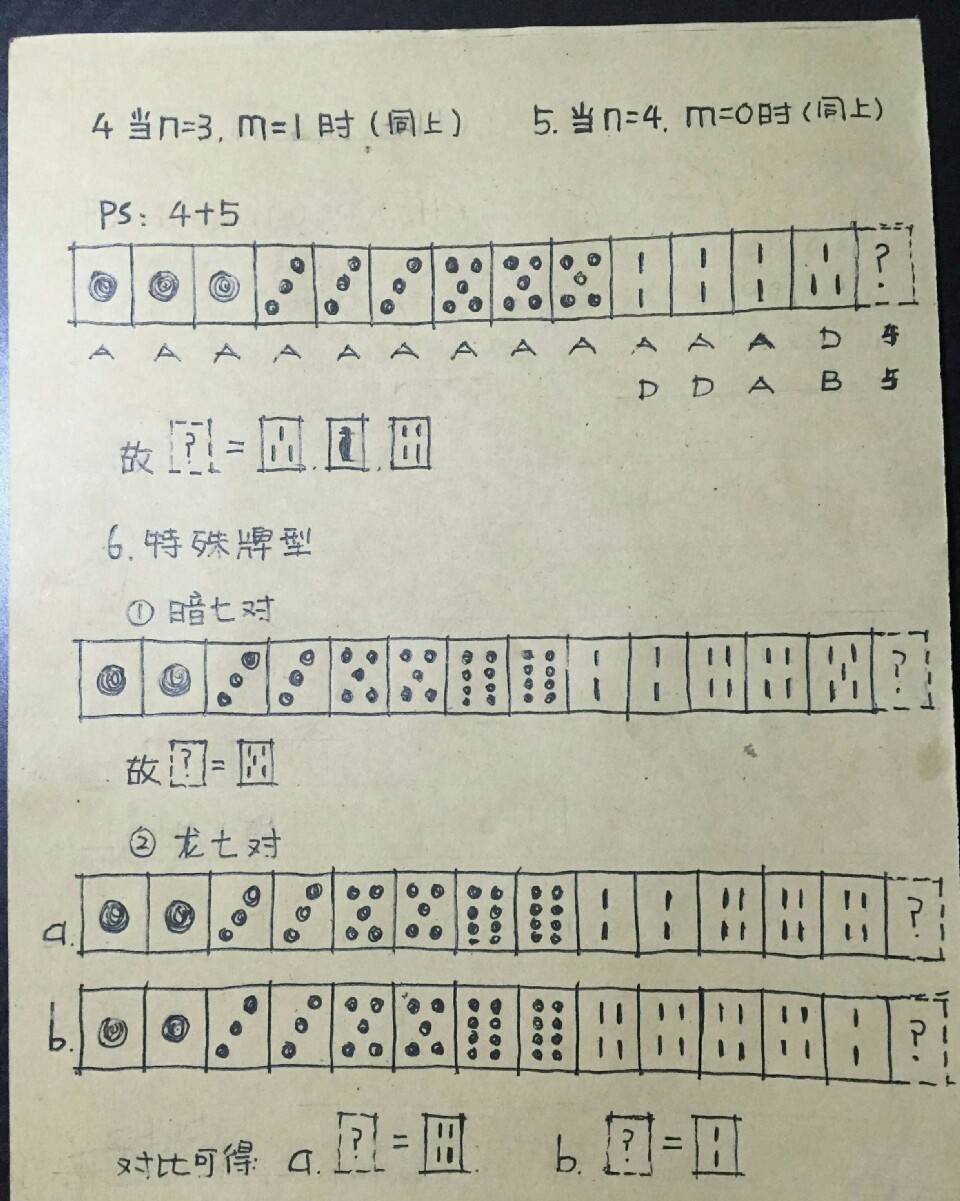 4 当n=3, m=1时(同上) 5. 当n=4, m=0时(同上)
PS: 4+5
?
A A A A A A A A A A A A D 4
D D A B 5
故 ? = , ,
6. 特殊牌型
① 暗七对
?
故 ? =
② 龙七对
a. ?
b. ?
对比可得: a. ? = b. ? =